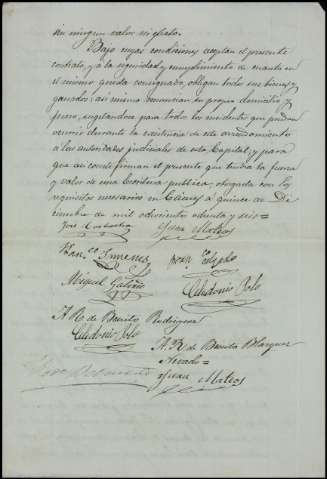 sin ningun valor ni efecto.
Bajo cuyas condiciones aceptan el presente
contrato, y á la seguridad y cumplimiento de cuanto en
el mismo queda consignado, obligan todos sus bienes y
ganados; asi mismo renuncian su propio domicilio y
fuero, sugetandose para todos los incidentes que puedan
ocurrir durante la existencia de este arrendamiento
á las autoridades judiciales de esta Capital; y para
que asi conste firman el presente que tendra la fuerza
y valor de una Escritura publica, otorgada con los
requisitos necesarios en Cáceres á quince de Di-
ciembre de mil ochocientos ochenta y seis=
José Juan Mateos
Fran.co Jimenez
Miguel Galeano Celedonio Polo
A. R. de Benito Rodriguez
Celedonio Polo
A. R. de Benito Blazquez
Juan Mateos